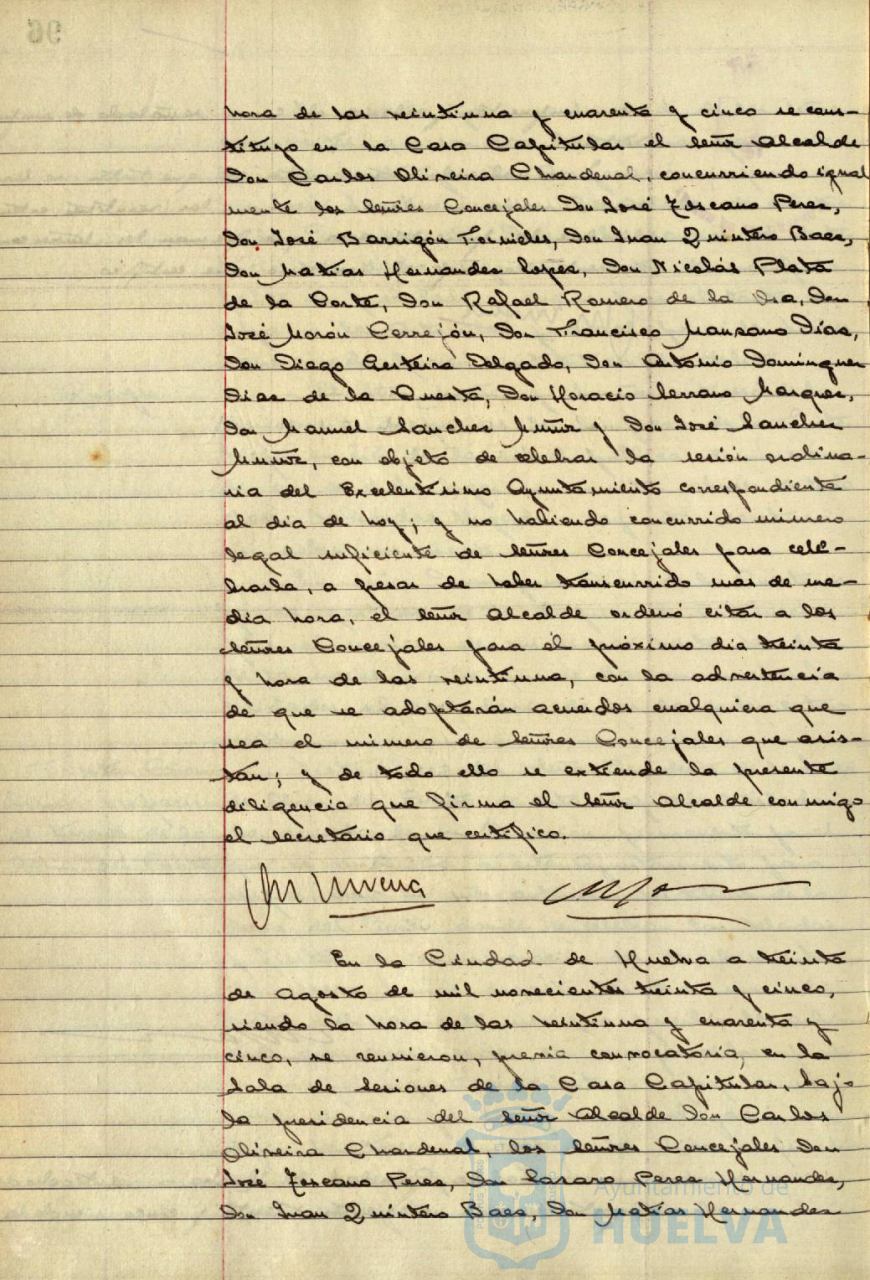 96
hora de las veintinna y cuarenta y cinco se cons-
tituyo en la Casa Capitular el señor Alcalde
Don Carlos Oliveira Chardenal, concurriendo igual
mente los señores Concejales Don José Toscano Perez,
Don José Barrigón Fornieles, Don Juan Quintero Baez,
Don Matías Hernandez Lopez, Don Nicolás Plata
de la Corte, Don Rafael Romero de la Osa, Don
José Morón Cerrejón, Don Francisco Manzano Días,
Don Diego Gesteira Delgado, Don Antonio Dominguez
Dias de la Cuesta, Don Horacio Serrano Marquez,
Don Manuel Sanchez Muñiz y Don José Sanchez
Muñiz, con objeto de celebrar la sesión ordina-
ria del Excelentísimo Ayuntamiento correspondiente
al dia de hoy; y no habiendo concurrido número
legal suficiente de señores Concejales para cele-
brarla, a pesar de haber transcurrido mas de me-
dia hora, el señor Alcalde ordenó citar a los
señores Concejales para el próximo dia treinta
y hora de las veintinna, con la advertencia
de que se adoptarán acuerdos cualquiera que
sea el número de señores Concejales que asis-
tan; y de todo ello se extiende la presente
diligencia que firma el señor Alcalde conmigo
el secretario que certifico.
En la Ciudad de Huelva a treinta
de Agosto de mil novecientos treinta y cinco,
siendo la hora de las veintinna y cuarenta y
cinco, se reunieron, previa convocatoria, en la
Sala de Sesiones de la Casa Capitular, bajo
la presidencia del señor Alcalde Don Carlos
Oliveira Chardenal, los señores Concejales Don
José Toscano Perez, Don Lazaro Perez Hernandez,
Don Juan Quintero Baez, Don Matías Hernandez
Ayuntamiento de
HUELVA